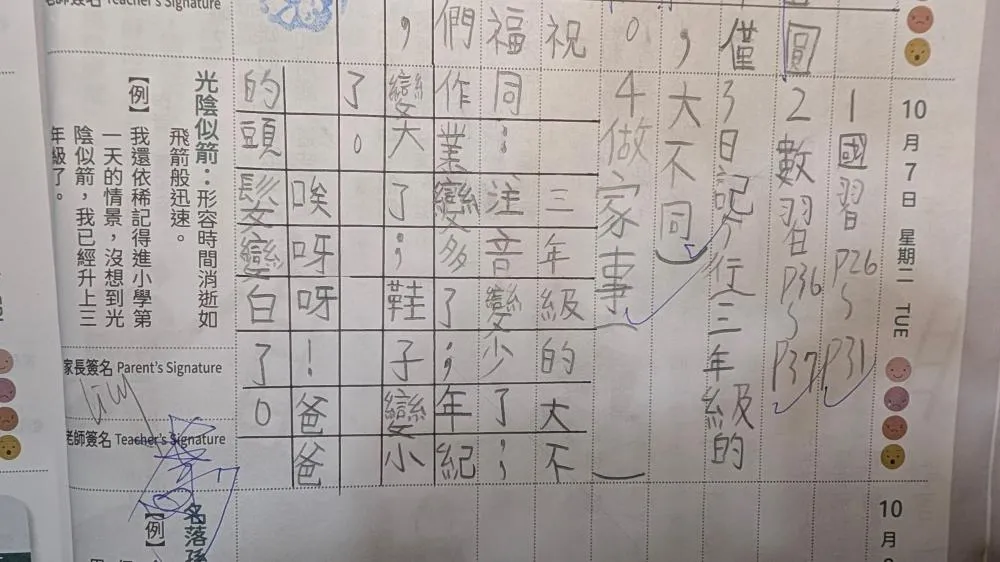 圓
僅
,
。
祝
福
們
,
老師簽名 Teacher's Signature
10月7日 星期二 TUE
1國習P26~P31
2數習P36~P37
3日記5行(三年級的
大不同)
4做家事( )
三年級的大不
同:注音變少了;
作業變多了;年紀
變大了;鞋子變小
了。
唉呀呀!爸爸
的頭髮變白了。
光陰似箭:形容時間消逝如
飛箭般迅速。
【例】我還依稀記得進小學第
一天的情景,沒想到光
陰似箭,我已經升上三
年級了。
家長簽名 Parent's Signature
老師簽名 Teacher's Signature
10月
名落孫
【例】